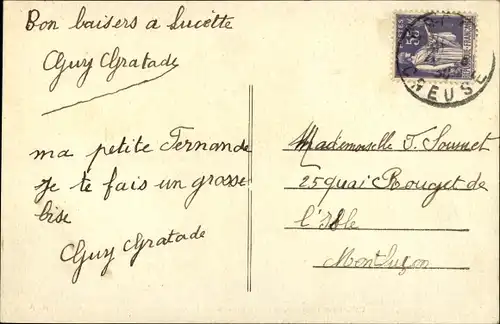 Bon baisers a Lucette
Guy Gratade
ma petite Fernande
je te fais un grosse
bise
Guy Gratade
Mademoiselle F.
25 quai Rouget de
l'Isle
Montluçon
POSTES
55
CREUSE